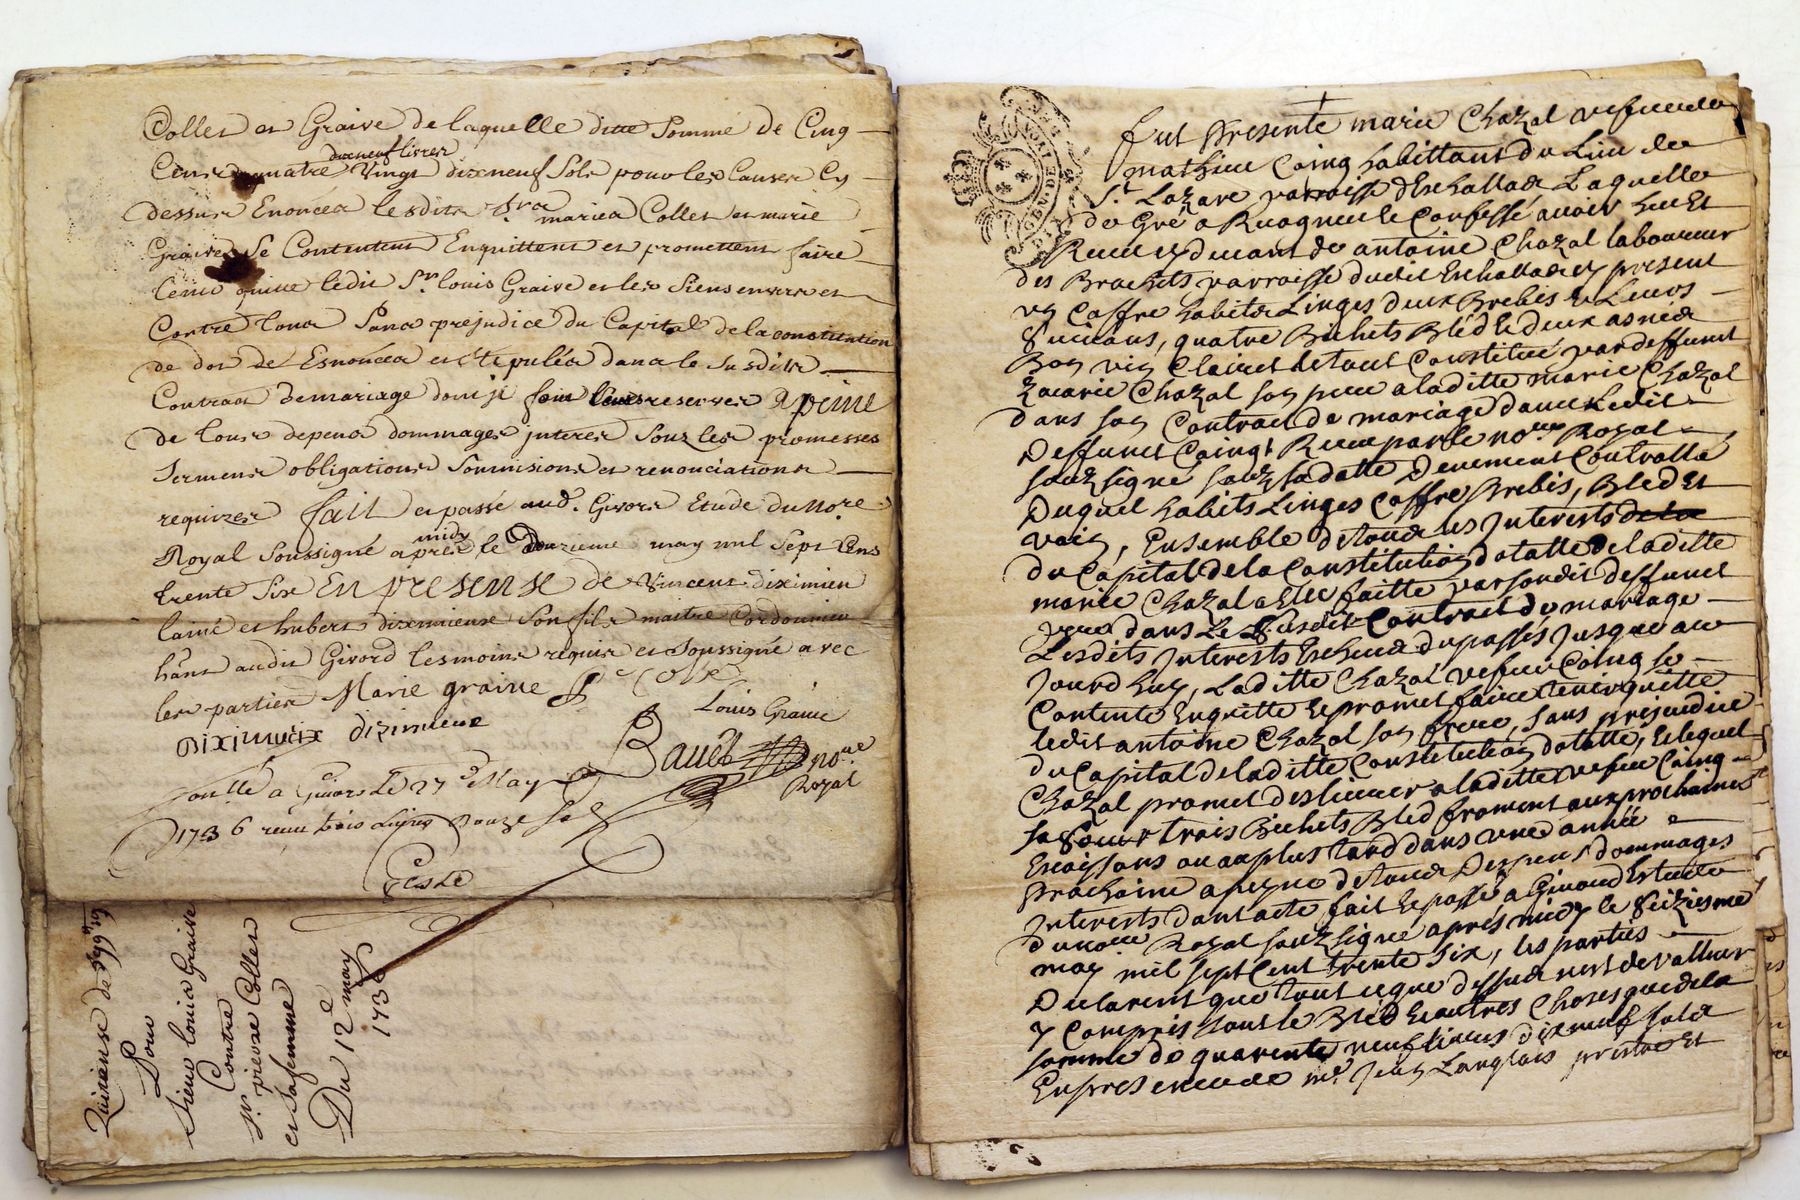 Collet et Graive de laquelle ditte somme de Cinq
Cens quatre Vingt dixneuf livres dixneuf sols pour les Causes Cy
dessus Enoncea lesdits
maries Collet et marie
Graive se Contentent Enquittent et promettent faire
tenir quitte ledit Sr. louis Graive et les Siens envers et
Contre tous Sans prejudice du Capital de la constitution
de dot de Esnoncea et stipuléa dans le susdits
Contract de mariage dont je font reserves A peine
de tous depens dommages interes Souz les promesses
Sermens obligations Sommisions et renonciations
requizes fait et passé aud. Givors Etude du No.re
Royal Soussigné apres midy le douzieme may mil Sept Cens
trente Six En presense de Vincent diximien
lainé et hubert diximieux Son fils maitre Cordonnier
hant audit Givord tesmoins requis et Soussigné avec
les parties Marie graive P Colle
Louis Graive
Diximieux diximieux
Bauet no.re
Royal
a Givors Le 27 May
1736 receu trois Livres Douze sols
Geste
Quittance de 599 lt 19
Pour
Sieur louis Graive
Contre
Sr. pierre Collet
et sa femme
Du 12e may
1736
fut Presente marie Chazal vesfue de
mathieu Coing habittant du Lieu de
St. Lazare parroisse d'Eschallas Laquelle
de Gré a Recogneu et Confessé avoir heu Et
Receu cy devant de antoine Chazal laboureur
des Brachets parroisse dudit Eschallas cy present
vn Coffre habits Linges deux Brebis et Leurs
Suivans, quatre Bichets Bléd et deux asnées
Bon vin Clairet le tout Constitué par deffunct
Zacarie Chazal son pere a laditte marie Chazal
dans son Contract de mariage d'avec Ledit
Deffunct Coingt Receu par le no.re Royal
souzsigné souz sa datte Deuement Controllé
Duquel habits Linges Coffre Brebis, Bled Et
vain, Ensemble de tous les Interests de la
du Capital de la Constitution dotalle de laditte
marie Chazal a Elle faitte par sondit deffunct
pere dans Le Susdit Contract de mariage
Lesdits Interests Escheus du passés Jusque au
Jourd huy, Laditte Chazal vesfue Coing se
Contente Enquitte et promet faire tenir quitte
ledit antoine Chazal son frere, sans prejudice
du Capital de laditte Constitution dotalle, Et lequel
Chazal promet deslivrer a laditte vesfue Coing
sa Soeur trois Bichets Bléd froment aux prochaines
moissons ou au plus tard dans vne année
Prochaine a peyne de tous Despens dommages
Interests dont acte fait et passé a Givord Estude
du no.re Royal souzsigné apres midy le Seiziesme
may mil sept Cent trente Six, les parties
Declarent que tout ce que dessus n'est de valleur
y Compris tout le Bléd et autres Choses que de la
somme de quarente neuf livres dix neuf sols
En presence de me. Jean Langlois prestre Et